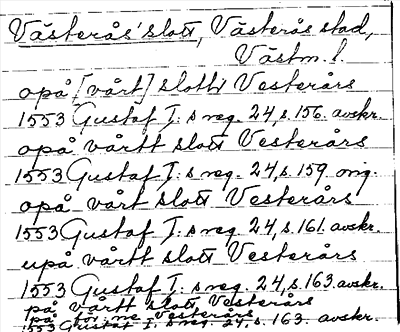 Västerås' slott, Västerås stad,
Västm. l.
opå [vårt] slott Vesterårs
1553 Gustaf I:s reg. 24, s. 156. avskr.
opå vårtt slott Vesterårs
1553 Gustaf I:s reg. 24, s. 159. orig.
opå vårt slott Vesterårs
1553 Gustaf I:s reg. 24, s. 161. avskr.
upå vårtt slott Vesterårs
1553 Gustaf I:s reg. 24, s. 163. avskr.
på vårtt slott Vesterårs
1553 Gustaf I:s reg. 24, s. 163. avskr.